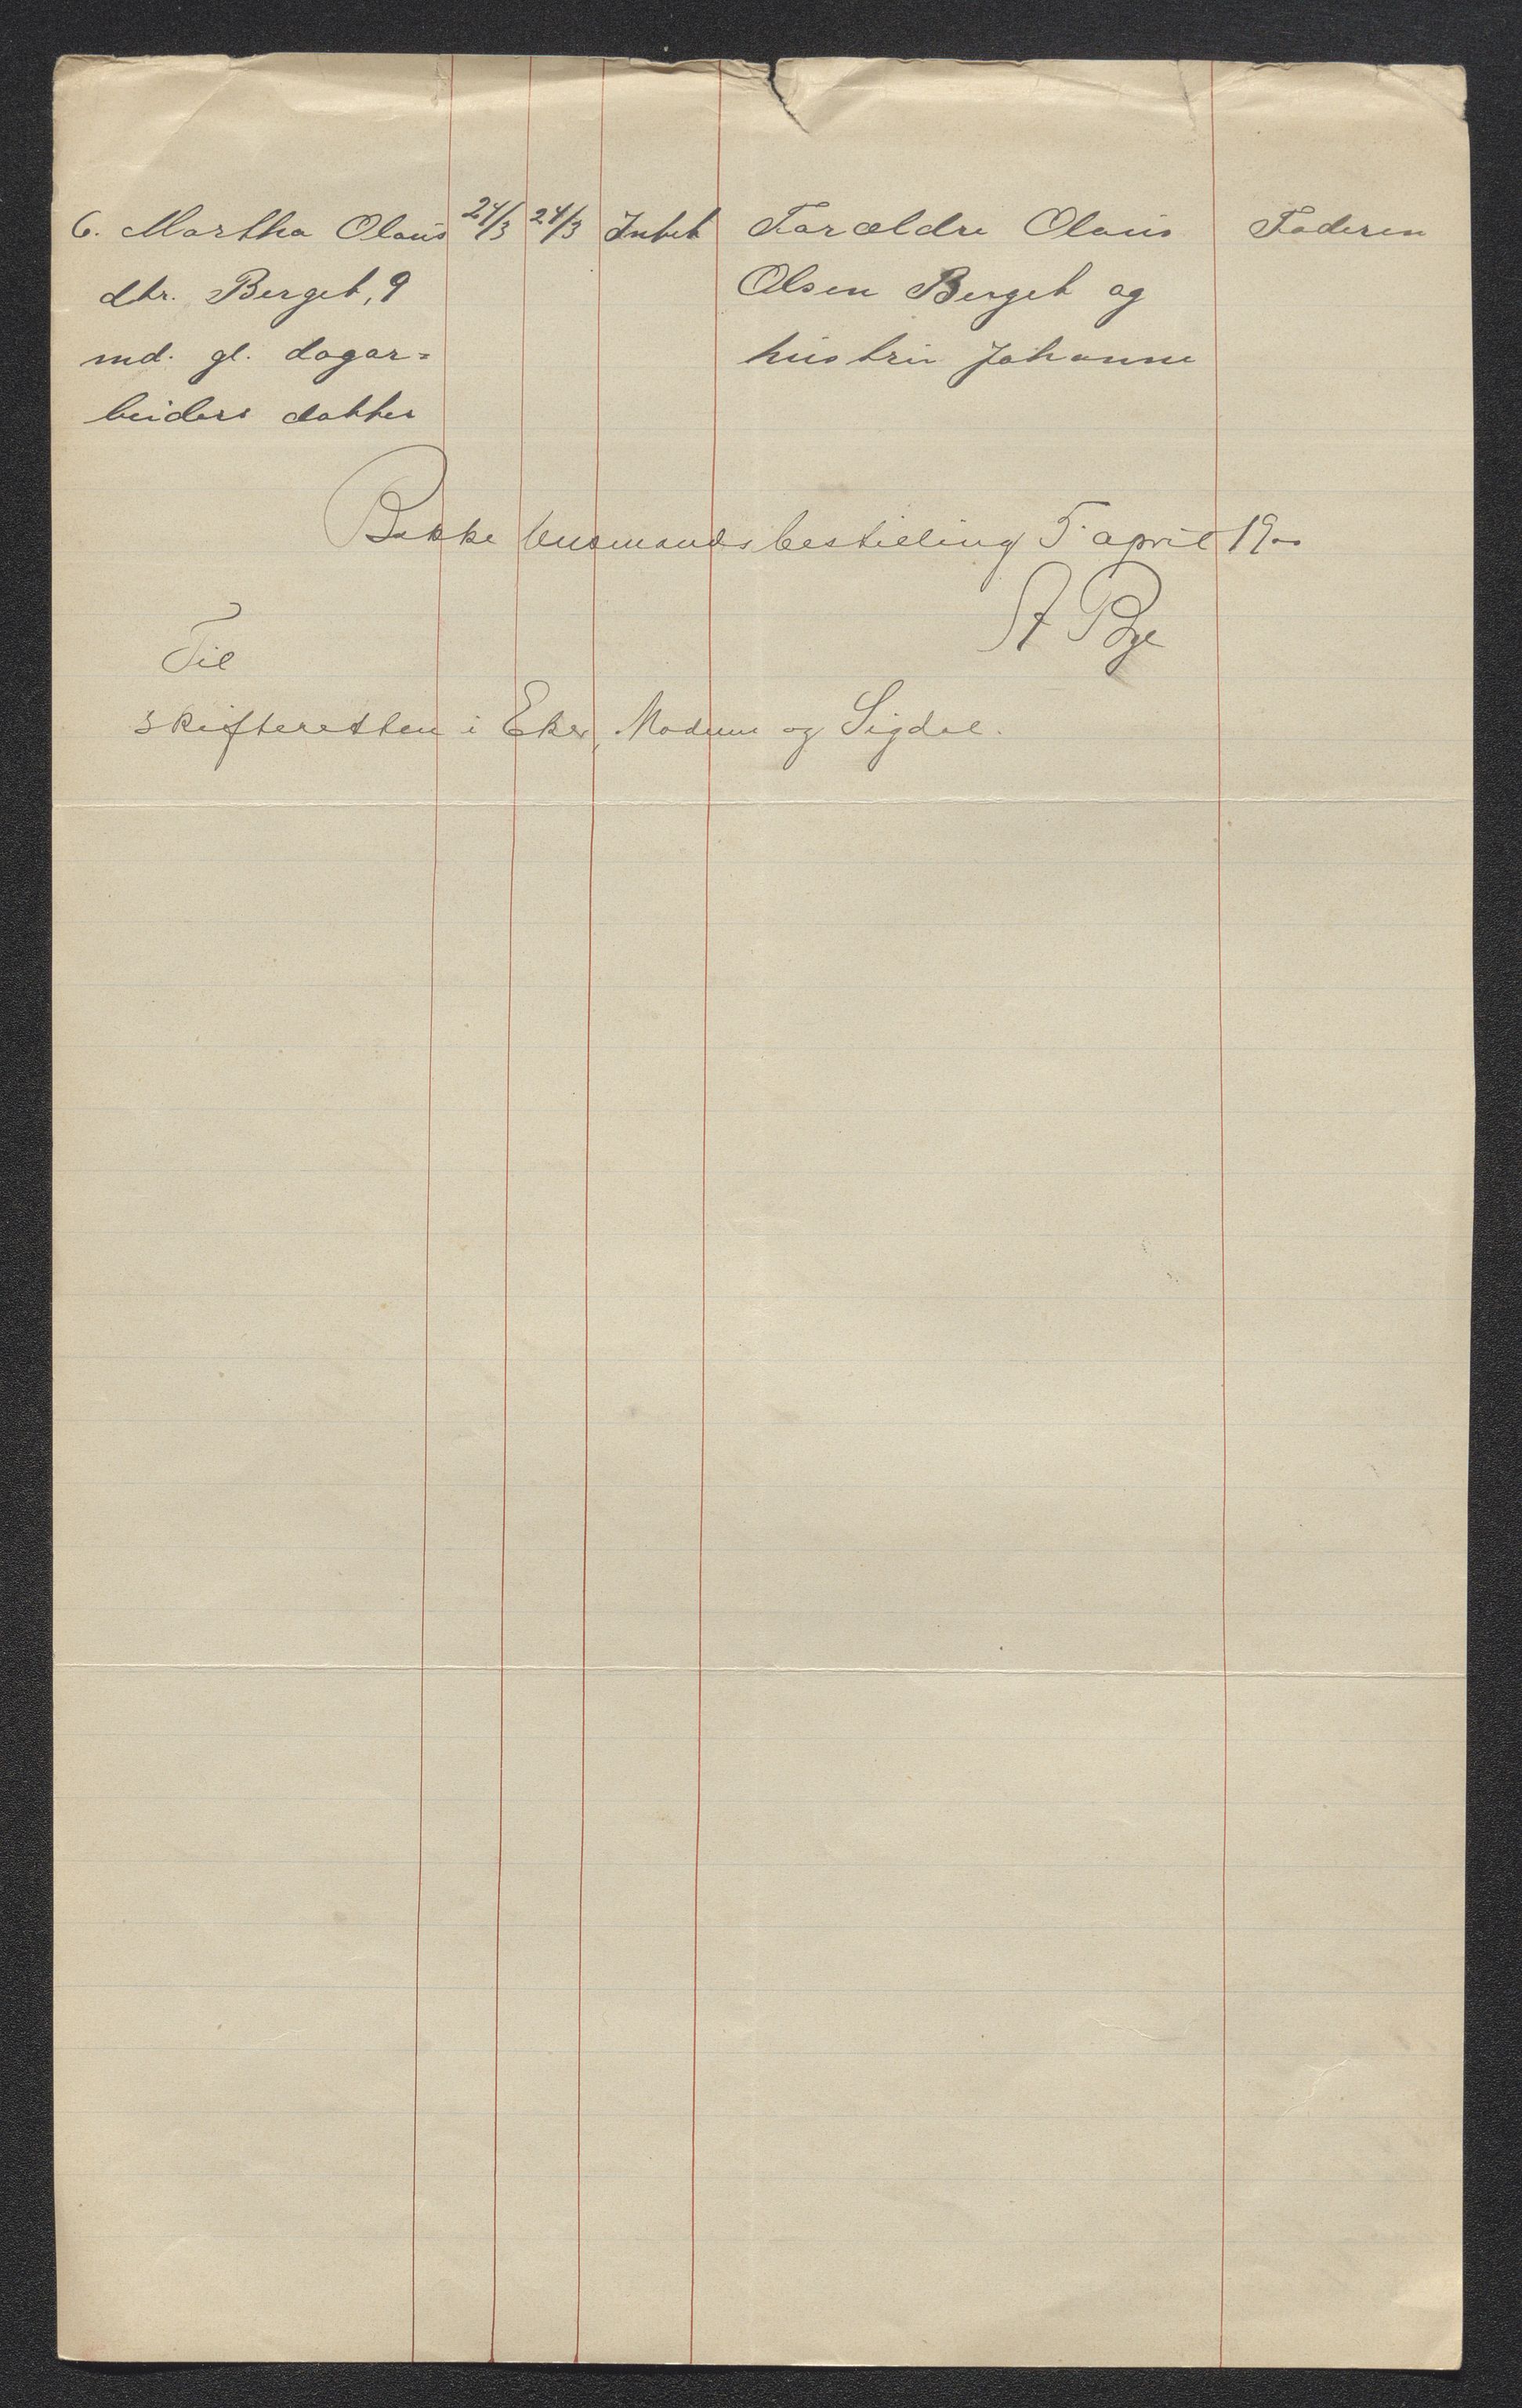 6. Martha Olaus 24/3 24/3 Intet Forældre Olaus Faderen
dtr. Berget, 9 Olsen Berget og
md. gl. dagar= hustru Johanne
beiders datter
Bakke lensmandsbestilling 5 april 1900
St Bye
Til
skifteretten i Eker, Modum og Sigdal.